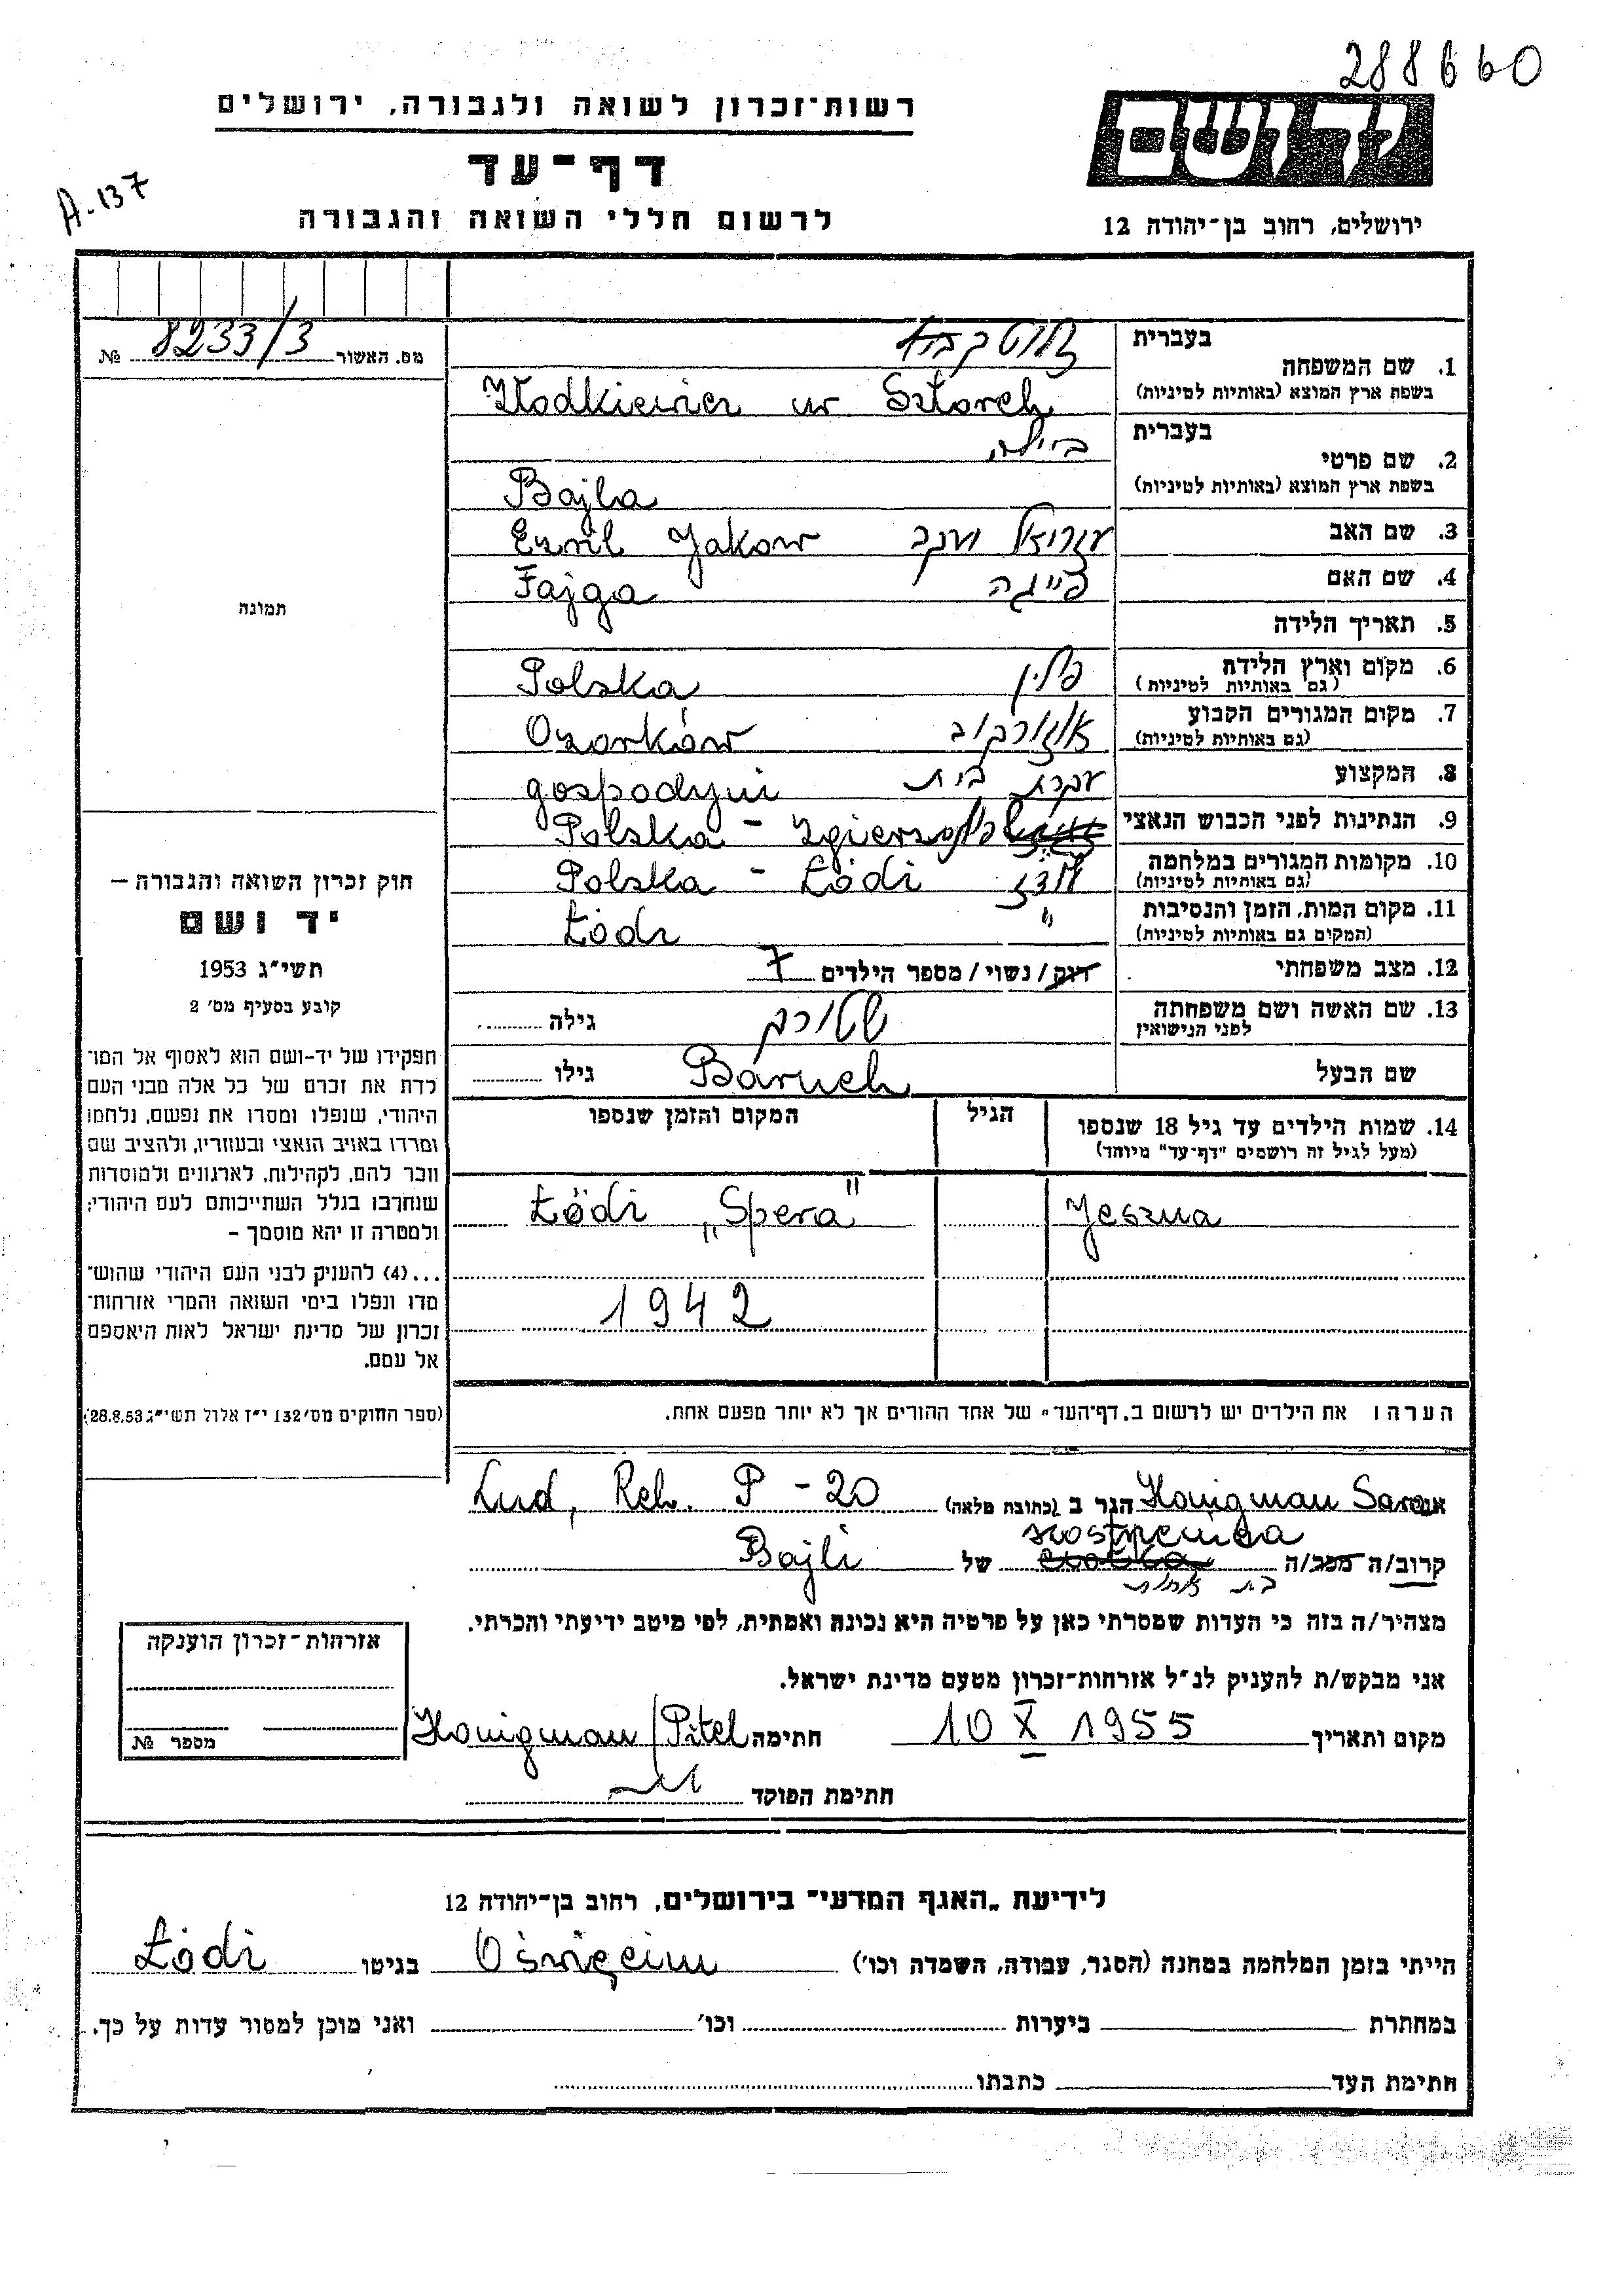 288660
רשות־זכרון לשואה ולגבורה, ירושלים
יד ושם
דף־עד
A-137
לרשום חללי השואה והגבורה
ירושלים, רחוב בן־יהודה 12
מס. האשור 8233/3 №
בעברית
1. שם המשפחה
בשפת ארץ המוצא (באותיות לטיניות) Złodkiewicz ur Sztorch
בעברית ביילה
2. שם פרטי
בשפת ארץ המוצא (באותיות לטיניות) Bajla
3. שם האב עזריאל יעקב Ezril Jakow
4. שם האם פייגה Fajga
תמונה
5. תאריך הלידה
6. מקום וארץ הלידה פולין Polska
(גם באותיות לטיניות)
7. מקום המגורים הקבוע אוזורקוב Ozorków
(גם באותיות לטיניות)
8. המקצוע עקרת בית gospodyni
9. הנתינות לפני הכבוש הנאצי Polska -
10. מקומות המגורים במלחמה לודז Polska - Łódź
(גם באותיות לטיניות)
11. מקום המות, הזמן והנסיבות " Łódź
(המקום גם באותיות לטיניות)
12. מצב משפחתי רווק/נשוי/מספר הילדים 7
13. שם האשה ושם משפחתה שטורך גילה
לפני הנישואין
שם הבעל Baruch גילו
14. שמות הילדים עד גיל 18 שנספו הגיל המקום והזמן שנספו
(מעל לגיל זה רושמים "דף־עד" מיוחד)
Jeszua Łódź „Spera"
1942
חוק זכרון השואה והגבורה —
יד ושם
תשי"ג 1953
קובע בסעיף מס' 2
תפקידו של יד-ושם הוא לאסוף אל המו־
לדת את זכרם של כל אלה מבני העם
היהודי, שנפלו ומסרו את נפשם, נלחמו
ומרדו באויב הנאצי ובעוזריו, ולהציב שם
וזכר להם, לקהילות, לארגונים ולמוסדות
שנחרבו בגלל השתייכותם לעם היהודי;
ולמטרה זו יהא מוסמך –
...(4) להעניק לבני העם היהודי שהוש־
מדו ונפלו בימי השואה והמרי אזרחות־
זכרון של מדינת ישראל לאות היאספם
אל עמם.
(ספר החוקים מס' 132 י"ז אלול תשי"ג 28.8.53)
הערה: את הילדים יש לרשום ב„דף־העד" של אחד ההורים אך לא יותר מפעם אחת.
אני Honigman Sara הגר ב (כתובת מלאה) Lud, Reh. P - 20
siostrzenica
קרוב/ה מכר/ה של Bajli
בת אחות
מצהיר/ה בזה כי העדות שמסרתי כאן על פרטיה היא נכונה ואמתית, לפי מיטב ידיעתי והכרתי.
אני מבקש/ת להעניק לנ"ל אזרחות־זכרון מטעם מדינת ישראל.
מקום ותאריך 10 X 1955 חתימה Honigman/Pitel
חתימת הפוקד
אזרחות־זכרון הוענקה
מספר №
לידיעת „האגף המדעי" בירושלים, רחוב בן־יהודה 12
הייתי בזמן המלחמה במחנה (הסגר, עבודה, השמדה וכו') Oświęcim בגיטו Łódź
במחתרת ביערות וכו' ואני מוכן למסור עדות על כך.
חתימת העד כתבתו